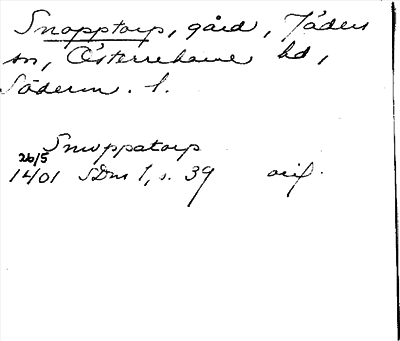 Snopptorp, gård, Jäders
sn, Österrekarne hd,
Söderm. l.
Snoppatorp
26/5
1401 SDns 1, s. 39 orig.